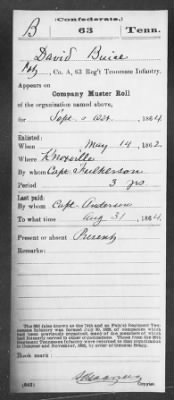 (Confederate.)
B 63 Tenn.
David Buise
Pvt, Co. A, 63 Reg't Tennessee Infantry.
Appears on
Company Muster Roll
of the organization named above,
for Sept. & Oct., 1864
Enlisted:
When May 14, 1862
Where Knoxville
By whom Capt. Fulkerson
Period 3 yrs
Last paid:
By whom Capt. Anderson
To what time Aug 31, 1864
Present or absent Present
Remarks:
Book mark:
(642)
Copyist.